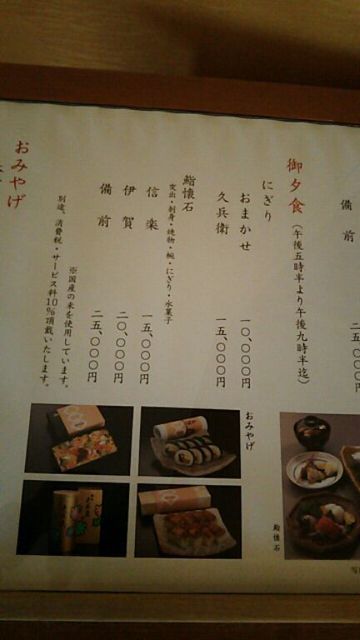 備前
二五、〇〇〇円
御夕食（午後五時半より午後九時半迄）
にぎり
おまかせ 一〇、〇〇〇円
久兵衛 一五、〇〇〇円
鮨懐石
突出・刺身・焼物・椀・にぎり・水菓子
信楽 一五、〇〇〇円
伊賀 二〇、〇〇〇円
備前 二五、〇〇〇円
※国産の米を使用しています。
別途、消費税・サービス料10％頂戴いたします。
おみやげ
おみやげ
鮨懐石